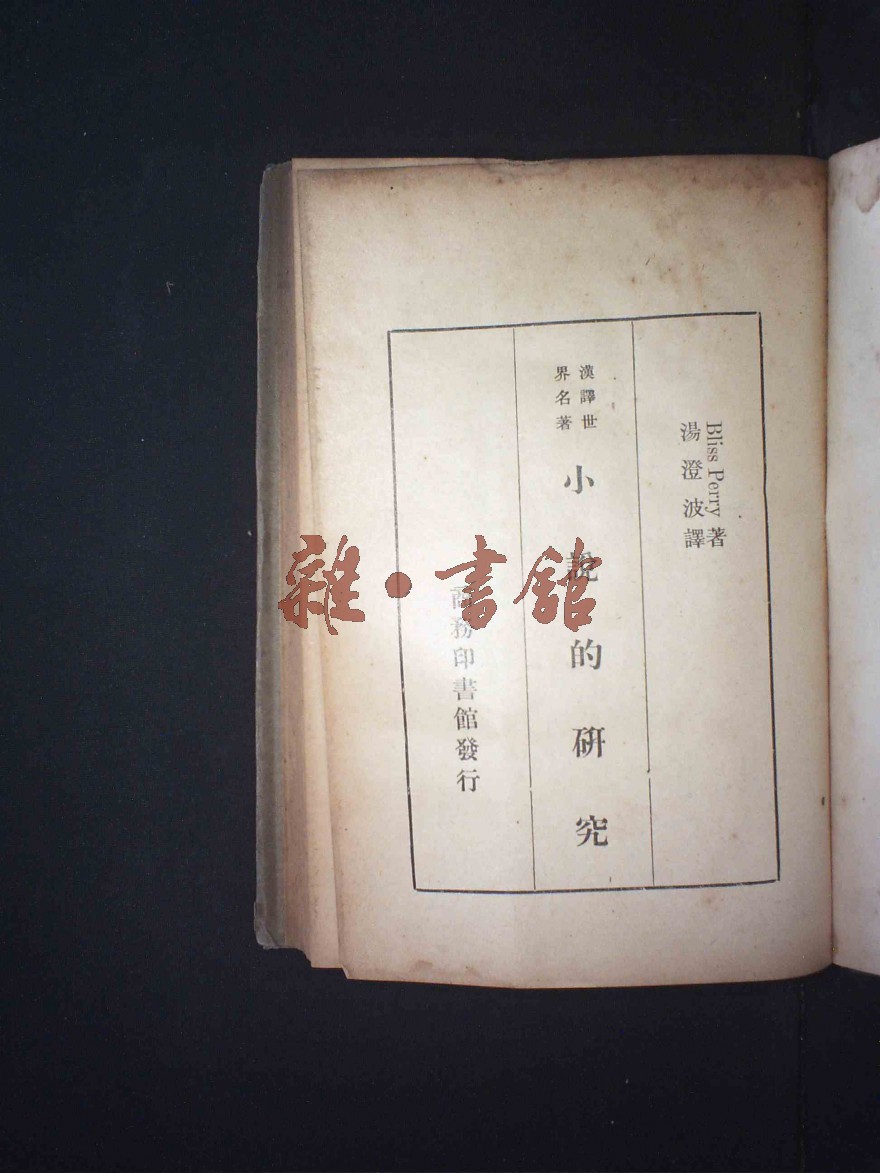 Bliss Perry 著
湯澄波譯
漢譯世
界名著
小說的研究
商務印書館發行
雜·書館